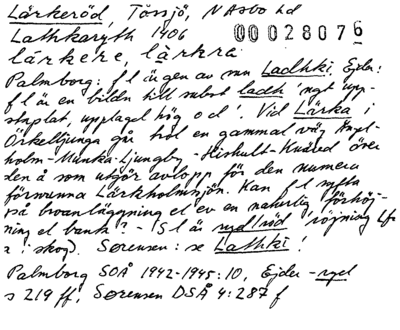 Lärkeröd, Tåssjö, N Åsbo hd
Lathkaryth 1406 00028076
lärkere, lärkra
Palmborg: f l är gen av mn Ladhki. Ejder:
f l är en bildn till subst ladh 'ngt upp-
staplat, upplagd hög o d'. Vid Lärka i
Örkelljunga går från en gammal väg Ängel-
holm-Munka-Ljungby-Hishult-Knäred över
den å som utgör avlopp för den numera
försvunna Lärkholmsjön. Kan f l syfta
på broanläggning el ev en naturlig förhöj-
ning el bank? - S l är ryd/röd 'röjning
i skog'. Sørensen: se Lathki!
Palmborg SOÅ 1942-1945:10, Ejder -ryd
s 219 ff, Sørensen DSÅ 4:287 f